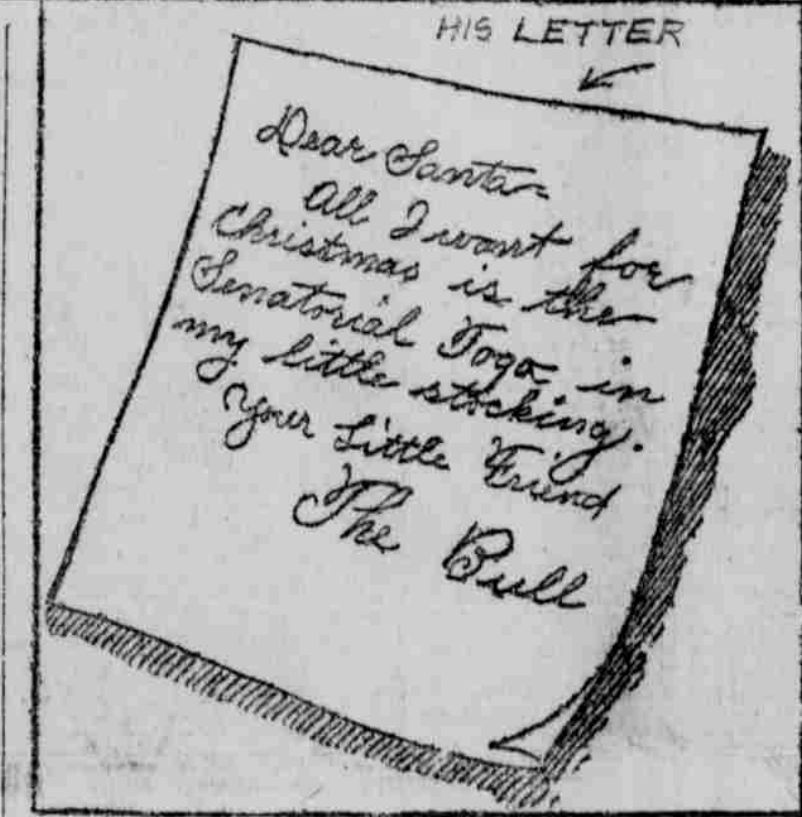 HIS LETTER
Dear Santa-
All I want for
Christmas is the
Senatorial Toga in
my little stocking.
Your Little Friend
The Bull